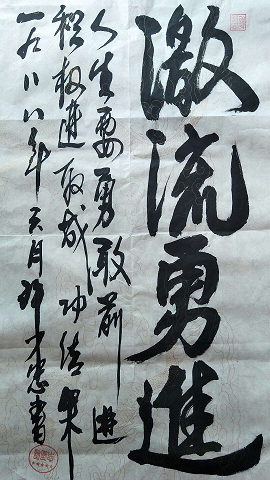 激流勇進
人生要勇敢前进
积极進取成功结果
一九八八年六月
忠書